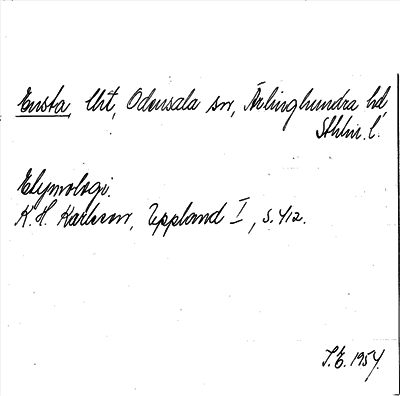 Ensta, Utt, Odensala sn, Ärlinghundra hd
Sthlm. l.
Etymologi.
K. H. Karlsson, Uppland I, s. 412.
S. E. 1954.